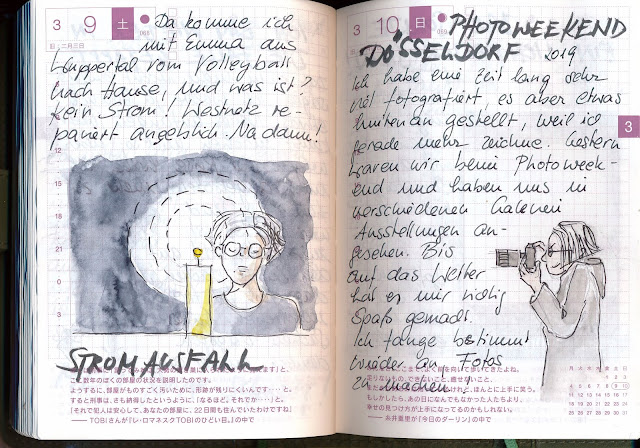 3 9 土
旧:二月三日
Da komme ich
mit Emma aus
Wuppertal vom Volleyball
nach Hause, und was ist?
Kein Strom! Westnetz re-
pariert angeblich. Na dann!
12
15
18
21
0
3
STROMAUSFALL
ここ数年のぼくの部屋の状況を説明したのです。
ようするに、部屋がものすごく汚いために、形跡が残りにくいんです……と。
すると刑事は、さも納得したというように、「なるほど。それでか……」と。
「それで犯人は安心して、あなたの部屋に、22日間も住んでいたわけですね」
——TOBIさんが『レ・ロマネスクTOBIのひどい目。』の中で
3 10 日
PHOTOWEEKEND
DÜSSELDORF 2019
Ich habe eine Zeit lang sehr
viel fotografiert, es aber etwas
hintenan gestellt, weil ich
gerade mehr zeichne. Gestern
waren wir beim Photoweek-
end und haben uns in
verschiedenen Galerien
Ausstellungen an-
gesehen. Bis
auf das Wetter
hat es mir richtig
Spaß gemacht.
Ich fange bestimmt
wieder an Fotos
zu machen!
3
もしかしたら、あの日になんでもなかった人たちより、
幸せの見つけ方が上手になってるのかもしれない。
——糸井重里が『今日のダーリン』の中で
月 火 水 木 金 土 日
1 2 3
4 5 6 7 8 9 10
11 12 13 14 15 16 17
18 19 20 21 22 23 24
25 26 27 28 29 30 31